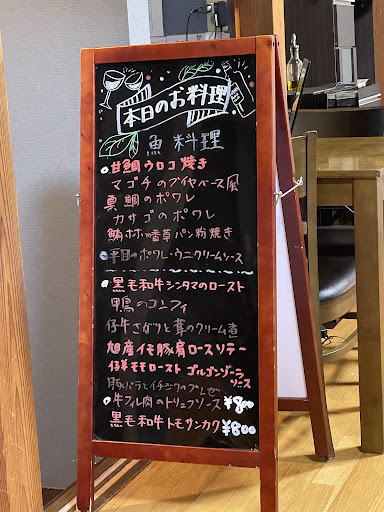 本日のお料理
魚料理
甘鯛ウロコ焼き
マゴチのブイヤベース風
真鯛のポワレ
カサゴのポワレ
鯛ホホの香草パン粉焼き
平目のポワレ・ウニクリームソース
黒毛和牛シンタマのロースト
鴨のコンフィ
仔牛さがりと茸のクリーム煮
旭産イモ豚肩ロースソテー
仔羊モモロースト ゴルゴンゾーラソース
豚バラとイチジクのブレゼ
牛フィレ肉のトリュフソース ¥800
黒毛和牛トモサンカク ¥800